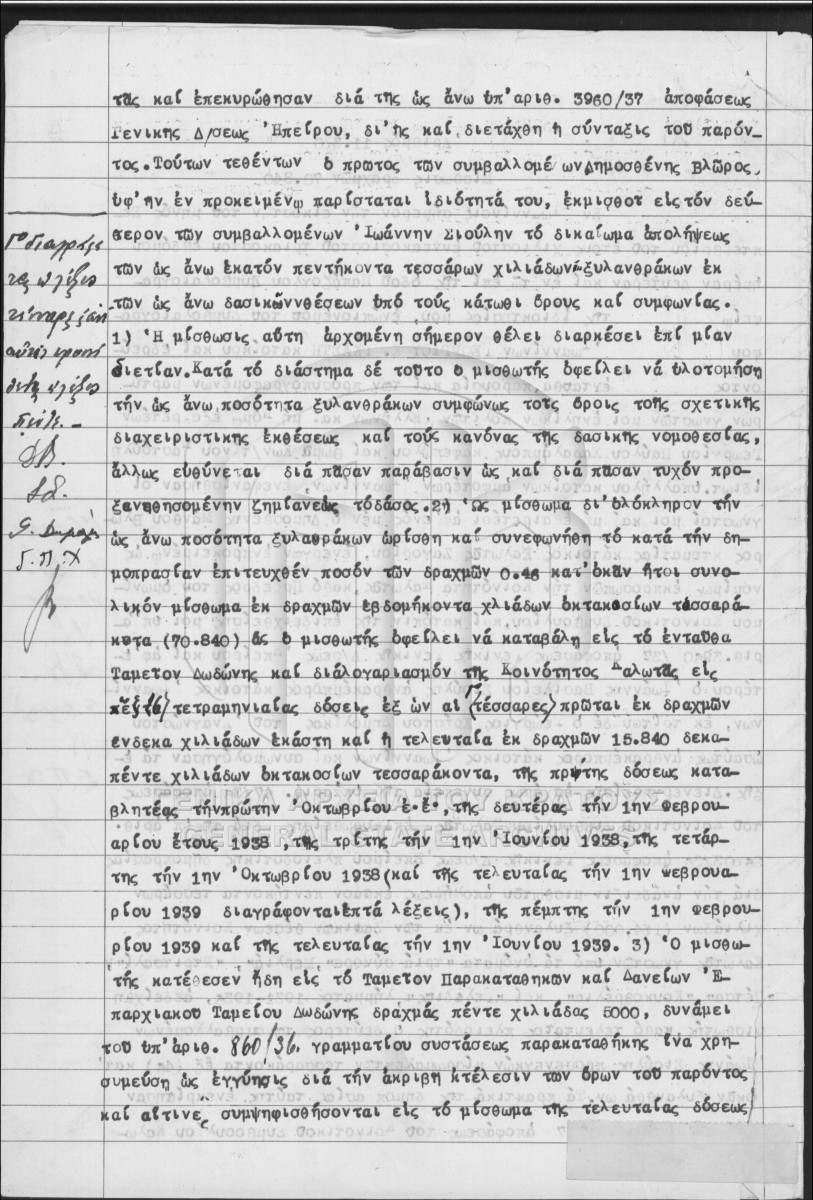 τας καί ἐπεκυρώθησαν διά τῆς ὡς ἄνω ὑπ'ἀριθ. 3960/37 ἀποφάσεως
Γενικῆς Δ/σεως Ἠπείρου, δι'ἧς καί διετάχθη ἡ σύνταξις τοῦ παρόν-
τος.Τούτων τεθέντων ὁ πρῶτος τῶν συμβαλλομέ ωνΔημοσθένης Βλῶρος
ὑφ'ἥν ἐν προκειμένῳ παρίσταται ἰδιότητά του, ἐκμισθοῖ εἰς τόν δεύ-
τερον τῶν συμβαλλομένων Ἰωάννην Σιούλην τό δικαίωμα ἀπολήψεως
τῶν ὡς ἄνω ἑκατόν πεντήκοντα τεσσάρων χιλιάδων ξυλανθράκων ἐκ
τῶν ὡς ἄνω δασικῶνθέσεων ὑπό τούς κάτωθι ὅρους καί συμφωνίας.
1) Ἡ μίσθωσις αὕτη ἀρχομένη σήμερον θέλει διαρκέσει ἐπί μίαν
διετίαν.Κατά τό διάστημα δέ τοῦτο ὁ μισθωτής ὀφείλει νά ὑλοτομήσῃ
τήν ὡς ἄνω ποσότητα ξυλανθράκων συμφώνως τοῖς ὅροις τοῆς σχετικῆς
διαχειριστικῆς ἐκθέσεως καί τούς κανόνας τῆς δασικῆς νομοθεσίας,
ἄλλως εὐθύνεται διά πᾶσαν παράβασιν ὡς καί διά πᾶσαν τυχόν προ-
ξενηθησομένην ζημίανεἰς τόδάσος.2) Ὡς μίσθωμα δι'ὁλόκληρον τήν
ὡς ἄνω ποσότητα ξυλαθράκων ὡρίσθη καί συνεφωνήθη τό κατά τήν δη-
μοπρασίαν ἐπιτευχθέν ποσόν τῶν δραχμῶν 0.46 κατ'ὀκᾶν ἤτοι συνο-
λικόν μίσθωμα ἐκ δραχμῶν ἑβδομήκοντα χιλιάδων ὀκτακοσίων τεσσαρά-
κοτα (70.840) ἅς ὁ μισθωτής ὀφείλει νά καταβάλῃ εἰς τό ἐνταῦθα
Ταμεῖον Δωδώνης καί διάλογαριασμόν τῆς Κοινότητος Δαλωτᾶς εἰς
ἕξ (6) τετραμηνιαίας δόσεις ἐξ ὧν αἱ (τέσσαρες) πρῶται ἐκ δραχμῶν
ἕνδεκα χιλιάδων ἑκάστη καί ἡ τελευταία ἐκ δραχμῶν 15.840 δεκα-
πέντε χιλιάδων ὀκτακοσίων τεσσαράκοντα, τῆς πρώτης δόσεως κατα-
βλητέας τήνπρώτην Ὀκτωβρίου ἐ.ἔ., τῆς δευτέρας τήν 1ην Φεβρου-
αρίου ἔτους 1938 ,τῆς τρίτης τήν 1ην Ἰουνίου 1938,τῆς τετάρ-
της τήν 1ην Ὀκτωβρίου 1938(καί τῆς τελευταίας τήν 1ην Φεβρουα-
ρίου 1939 διαγράφονταιἑπτά λέξεις), τῆς πέμπτης τήν 1ην Φεβρου-
ρίου 1939 καί τῆς τελευταίας τήν 1ην Ἰουνίου 1939. 3) Ὁ μισθω-
τής κατέθεσεν ἤδη εἰς τό Ταμεῖον Παρακαταθηκῶν καί Δανείων Ἐ-
παρχιακοῦ Ταμείου Δωδώνης δραχμάς πέντε χιλιάδας 5000, δυνάμει
τοῦ ὑπ'ἀριθ. 860/36. γραμματίου συστάσεως παρακαταθήκης ἵνα χρη-
συμεύσῃ ὡς ἐγγύησις διά τήν ἀκριβῆ κτέλεσιν τῶν ὅρων τοῦ παρόντος
καί αἵτινες συμψηφισθήσονται εἰς τό μίσθωμα τῆς τελευταίας δόσεως
ΓΕΝΙΚΑ ΑΡΧΕΙΑ ΤΟΥ ΚΡΑΤΟΥΣ
GENERAL STATE ARCHIVES